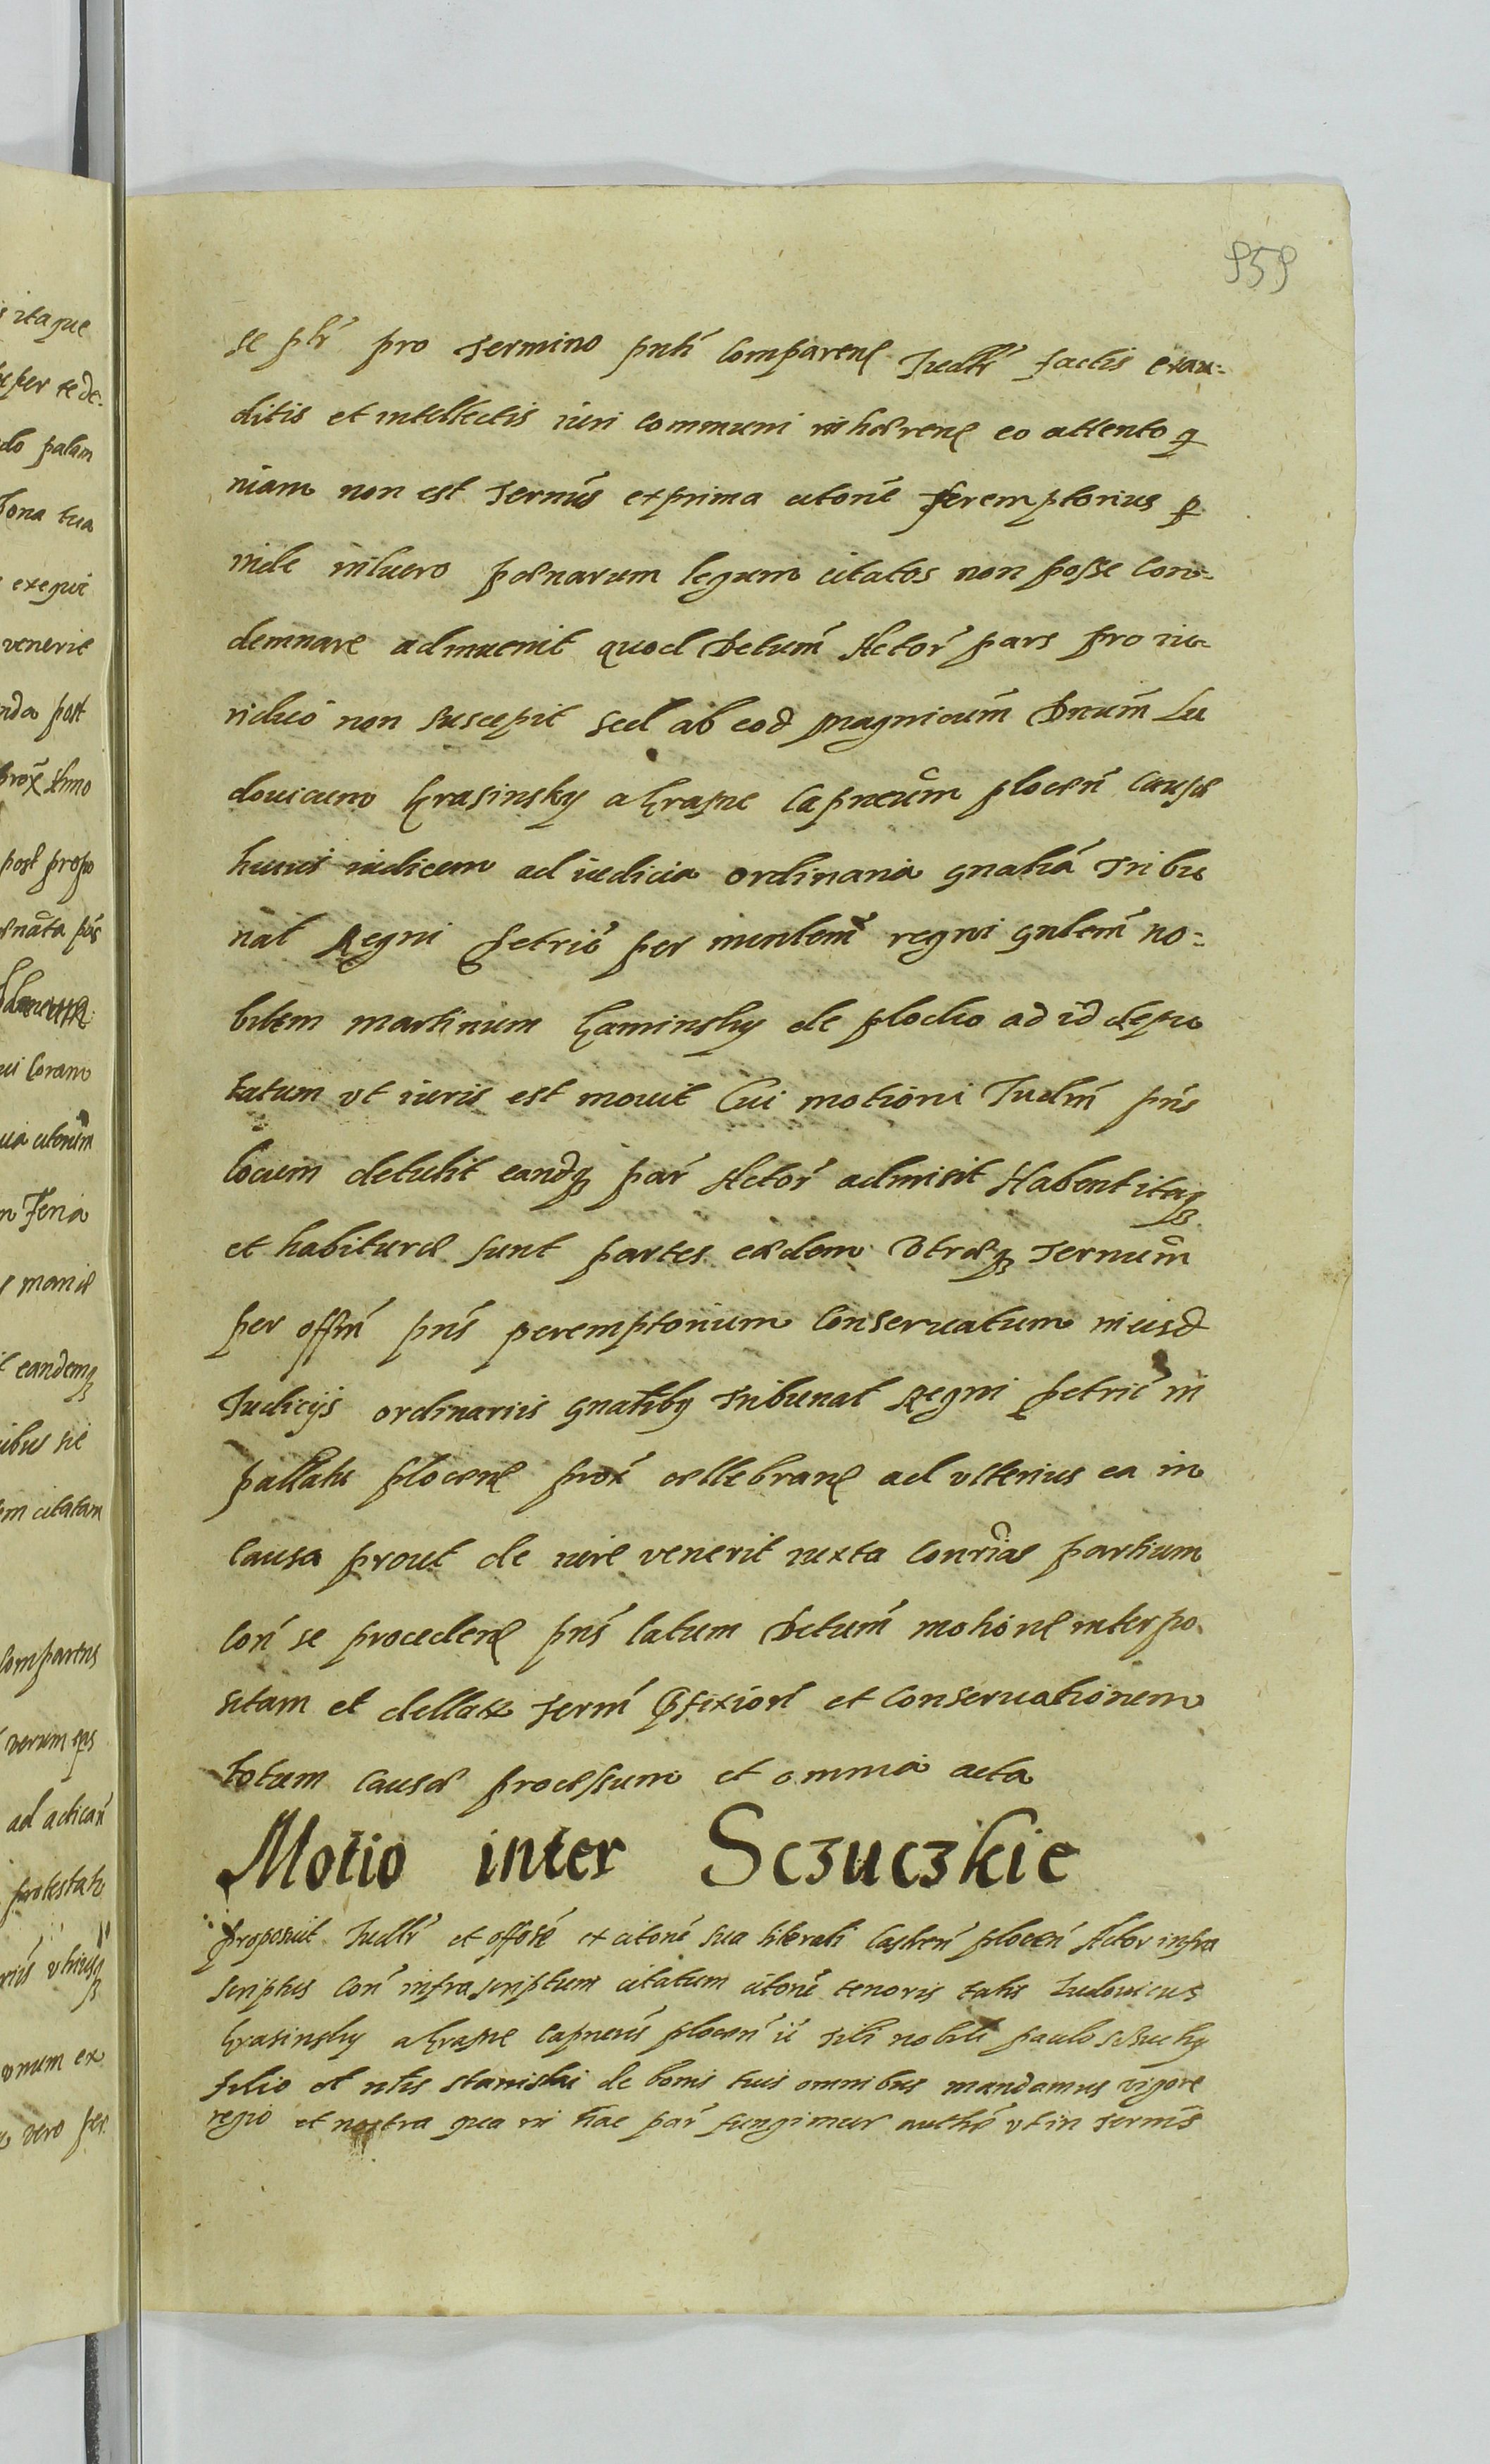 959
se ptr pro termino pnti comparen Judttr factis exau-
ditis et intellectis iuri communi inhæren eo attento q
niam non est termins ex prima citone peremptorius p
inde in luero pœnarum legum citatos non posse con-
demnare adinuenit quod Detum Actor pars pro iu-
ridico non suscepit sed ab eod magnificum Dnum Lu
douicum Krasinsky a Krasne Capneum plocen causæ
huius iudicem ad iudicia ordinaria gnalia Tribu
nal Regni Petric per mintem regni gnlem no-
bilem martinum Kaminsky de plocko ad id depu
tatum vt iuris est mouit Cui motioni Judm pns
locum detulit eandq par Actor admisit Habent itaq
et habituræ sunt partes eædem vtræq Terminum
per offm pns peremptorium conseruatum in eisd
Judicijs ordinariis gnalibg Tribunal Regni Petric in
pallatio plocen prox cællebran ad vlterius ea in
causa prout de iure venerit iuxta conrias partium
con se proceden pns latum Dctum motione interpo
sitam et dellatæ Term Pfixion et conseruationem
totum causæ processum et omnia acta
Motio inter Sczuczkie
Proposuit Judttr et offose ex citone sua literali Castren plocen Actor infra
scriptus con infrascriptum citatum citone tenoris talis Ludouicus
Krasinsky a Krasne capneus plocen ic tibi nobili paulo
filio ol nlis stanislai de bonis tuis omnibus mandamus vigore
regio et nostra qua in hac par fungimur autte vt in Termis